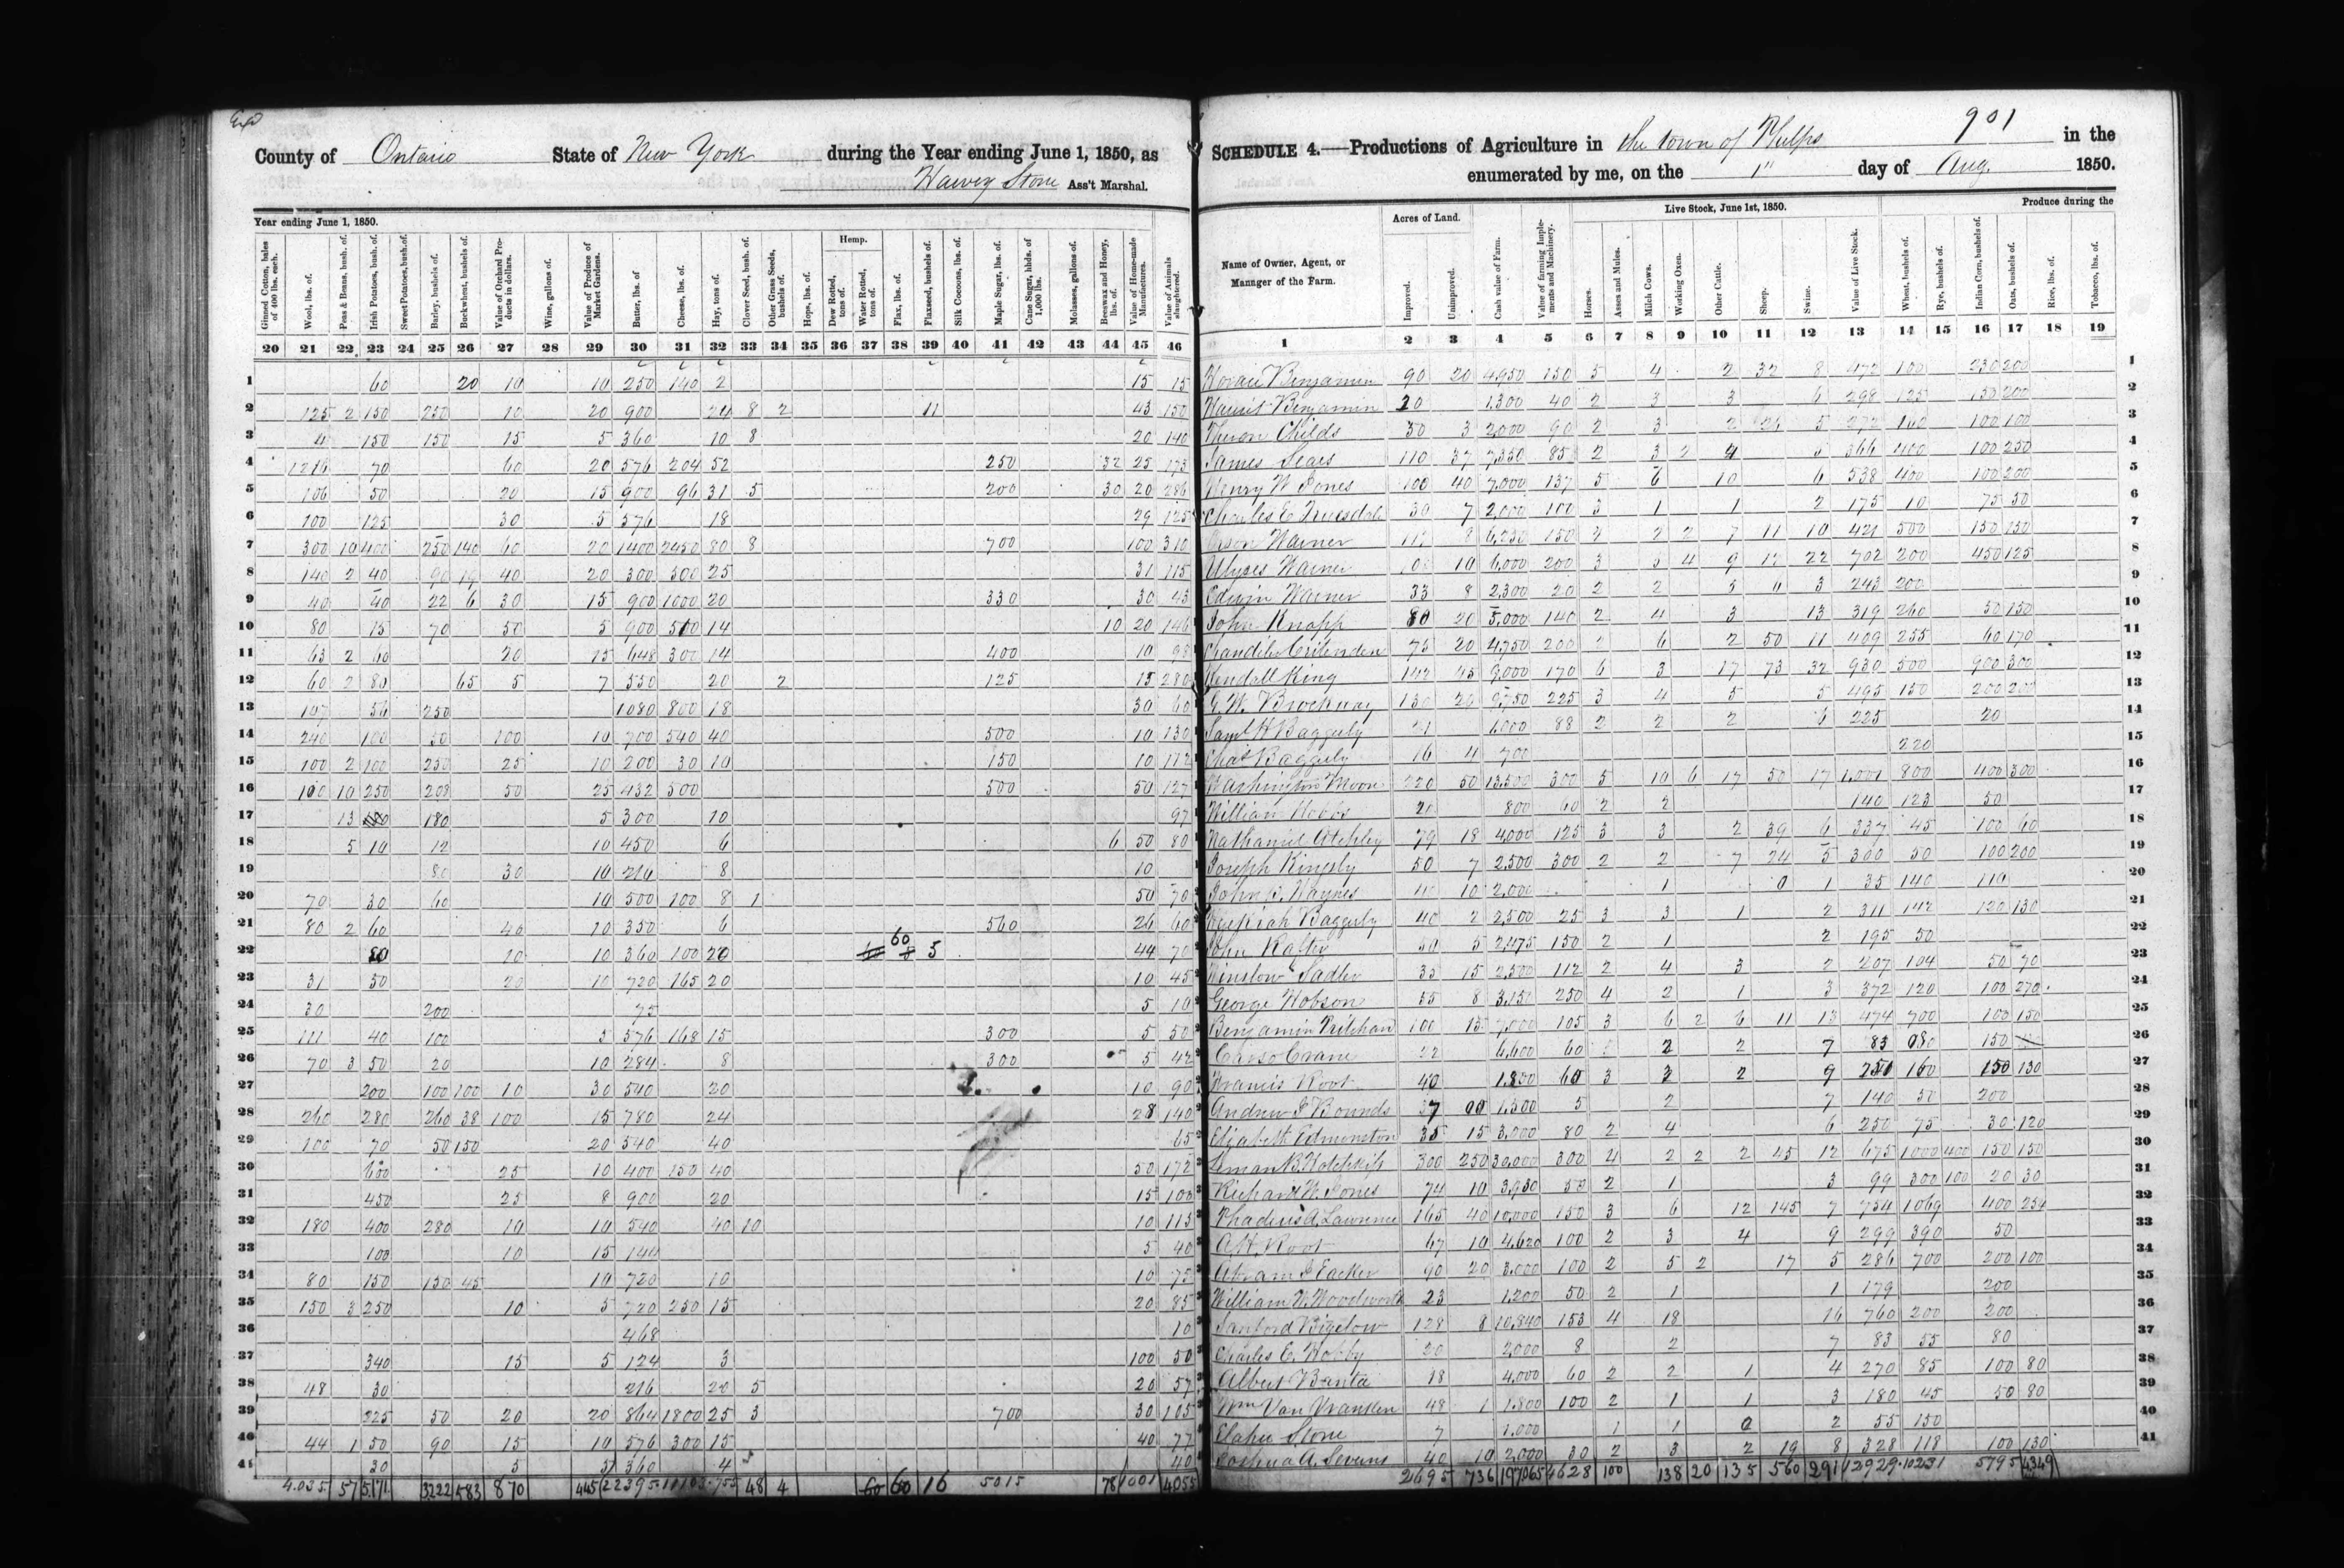 County of Ontario State of New York during the Year ending June 1, 1850, as
Harvey Stone Ass't Marshal.
Year ending June 1, 1850.
Ginned Cotton, bales of 400 lbs. each. Wool, lbs. of. Peas & Beans, bush. of. Irish Potatoes, bush. of. Sweet Potatoes, bush. of. Barley, bushels of. Buckwheat, bushels of. Value of Orchard Products in dollars. Wine, gallons of. Value of Produce of Market Gardens. Butter, lbs. of Cheese, lbs. of. Hay, tons of. Clover Seed, bush. of. Other Grass Seeds, bushels of. Hops, lbs. of. Hemp. Dew Rotted, tons of. Water Rotted, tons of. Flax, lbs. of. Flaxseed, bushels of. Silk Cocoons, lbs. of. Maple Sugar, lbs. of. Cane Sugar, hhds. of 1,000 lbs. Molasses, gallons of. Beeswax and Honey, lbs. of. Value of Home-made Manufactures. Value of Animals slaughtered.
20 21 22 23 24 25 26 27 28 29 30 31 32 33 34 35 36 37 38 39 40 41 42 43 44 45 46
1 60 20 10 10 250 140 2 15 15
2 125 2 150 250 10 20 900 24 8 2 11 43 150
3 4 150 150 15 5 360 10 8 20 140
4 70 60 20 576 204 52 250 32 25 173
5 106 50 20 15 900 96 31 5 200 30 20 286
6 100 125 30 5 576 18 29 125
7 300 10 400 250 140 60 20 1400 2450 80 8 700 100 310
8 140 2 40 90 19 40 20 300 300 25 31 115
9 40 40 22 6 30 15 900 1000 20 330 30 43
10 80 15 70 50 5 900 500 14 10 20 146
11 63 2 60 20 15 648 300 14 400 10 98
12 60 2 80 65 5 7 550 20 2 125 15 280
13 107 56 250 1080 800 18 30 60
14 240 100 50 100 10 700 540 40 500 10 130
15 100 2 100 250 25 10 200 30 10 150 10 112
16 100 10 250 208 50 25 432 500 500 50 127
17 13 180 5 300 10 97
18 5 10 12 10 450 6 6 50 80
19 80 30 10 216 8 10
20 70 30 60 10 500 100 8 1 50 70
21 80 2 60 40 10 350 6 560 26 60
22 80 10 10 360 100 20 60 5 44 70
23 31 50 20 10 720 165 20 10 45
24 30 200 75 5 10
25 111 40 100 5 576 168 15 300 5 50
26 70 3 50 20 10 284 8 300 5 42
27 200 100 100 10 30 540 20 10 90
28 260 280 260 38 100 15 780 24 28 140
29 100 70 50 150 20 540 40 65
30 600 25 10 400 150 40 50 172
31 450 25 8 900 20 15 100
32 180 400 280 10 10 540 40 10 10 113
33 100 10 15 144 5 40
34 80 150 150 45 10 720 10 10 75
35 150 3 250 10 5 720 250 15 20 85
36 468 10
37 340 15 5 124 3 100 50
38 48 30 216 20 5 20 57
39 225 50 20 20 864 1800 25 3 700 30 105
40 44 1 50 90 15 10 576 300 15 40 77
41 30 5 5 360 4 40
4.035 57 5171 3222 583 870 445 22395 11103 755 48 4 60 60 16 5015 78 1001 4055
901
SCHEDULE 4.—Productions of Agriculture in the town of Phelps in the
enumerated by me, on the 1" day of Aug. 1850.
Name of Owner, Agent, or Manager of the Farm. Acres of Land. Improved. Unimproved. Cash value of Farm. Value of farming Implements and Machinery. Live Stock, June 1st, 1850. Horses. Asses and Mules. Milch Cows. Working Oxen. Other Cattle. Sheep. Swine. Value of Live Stock. Produce during the Wheat, bushels of. Rye, bushels of. Indian Corn, bushels of. Oats, bushels of. Rice, lbs. of. Tobacco, lbs. of.
1 2 3 4 5 6 7 8 9 10 11 12 13 14 15 16 17 18 19
Horace Benjamin 90 20 4,950 150 5 4 2 32 8 472 100 230 200 1
Benjamin 20 1,300 40 2 3 3 6 298 125 150 200 2
Theron Childs 50 3 2,000 90 2 3 2 26 5 272 100 100 3
James Sears 110 37 7,350 85 2 3 2 4 5 366 400 100 250 4
Henry W Jones 100 40 7,000 137 5 6 10 6 538 400 100 200 5
Charles E Truesdale 30 7 2,000 100 3 1 1 2 175 10 75 50 6
Orson Warner 8 6,250 150 2 2 7 11 10 421 500 150 150 7
Ulysses Warner 10 6,000 200 3 5 4 9 17 22 702 200 450 125 8
Edwin Warner 33 8 2,300 20 2 2 5 3 243 200 9
John Knapp 80 20 5,000 140 2 4 3 13 319 260 50 150 10
Chandler Critenden 75 20 4,750 200 6 2 50 11 409 255 60 170 11
Kendall King 142 45 9,000 170 6 3 17 73 32 930 500 900 300 12
G. W. Brockway 130 20 9,750 225 3 4 5 5 495 150 200 200 13
Saml H Baggerly 21 1,000 88 2 2 2 6 225 20 14
Chas Baggerly 16 4 700 220 15
Washington Moore 220 50 13,500 300 5 10 6 17 50 17 1,001 800 400 300 16
William Hobbs 20 800 60 2 2 140 123 50 17
Nathaniel Atchley 79 18 4,000 125 3 3 2 39 6 337 45 100 60 18
Joseph Kingsly 50 7 2,500 300 2 2 7 24 5 300 50 100 200 19
John Haynes 10 2,000 1 0 1 35 140 110 20
Hezekiah Baggerly 40 2 2,500 25 3 3 1 2 311 142 120 130 21
John 5 2,475 150 2 1 2 195 50 22
Winslow Sadler 35 15 2,500 112 2 4 3 2 207 104 50 70 23
George Hobson 55 8 3,150 250 4 2 1 3 372 120 100 270 24
Benjamin 100 15 7,000 105 3 6 2 6 11 13 474 700 100 150 25
Crane 22 6,600 60 2 2 7 83 080 150 26
Francis Root 40 1,800 60 3 3 2 9 251 160 150 130 27
Andrew J Bounds 37 1,500 5 2 7 140 50 200 28
Elizabeth Edmonston 35 15 3,000 80 2 4 6 250 75 30 120 29
Leman B Hotchkiss 300 250 30,000 300 4 2 2 2 45 12 675 1000 400 150 150 30
Richard W. Jones 74 10 3,930 50 2 1 3 99 300 100 20 30 31
A. Lawrence 165 40 10,000 150 3 6 12 145 7 754 1069 400 254 32
A.H. Root 67 10 4,620 100 2 3 4 9 299 390 50 33
Abram J Eacker 90 20 3,000 100 2 5 2 17 5 286 700 200 100 34
William W. Woodworth 23 1,200 50 2 1 1 179 200 35
Sanford Bigelow 128 8 10,840 153 4 18 16 760 200 200 36
Charles E. Hobby 20 2,000 8 2 7 83 55 80 37
Albert Banta 18 4,000 60 2 2 1 4 270 85 100 80 38
Wm Van Vranken 48 1 1,800 100 2 1 1 3 180 45 50 80 39
Elahu Stone 7 1,000 1 1 0 2 55 150 40
Joshua A. Severns 40 10 2,000 30 2 3 2 19 8 328 118 100 130 41
2695 736 197065 4628 100 138 20 135 560 291 12929 10231 5795 4349